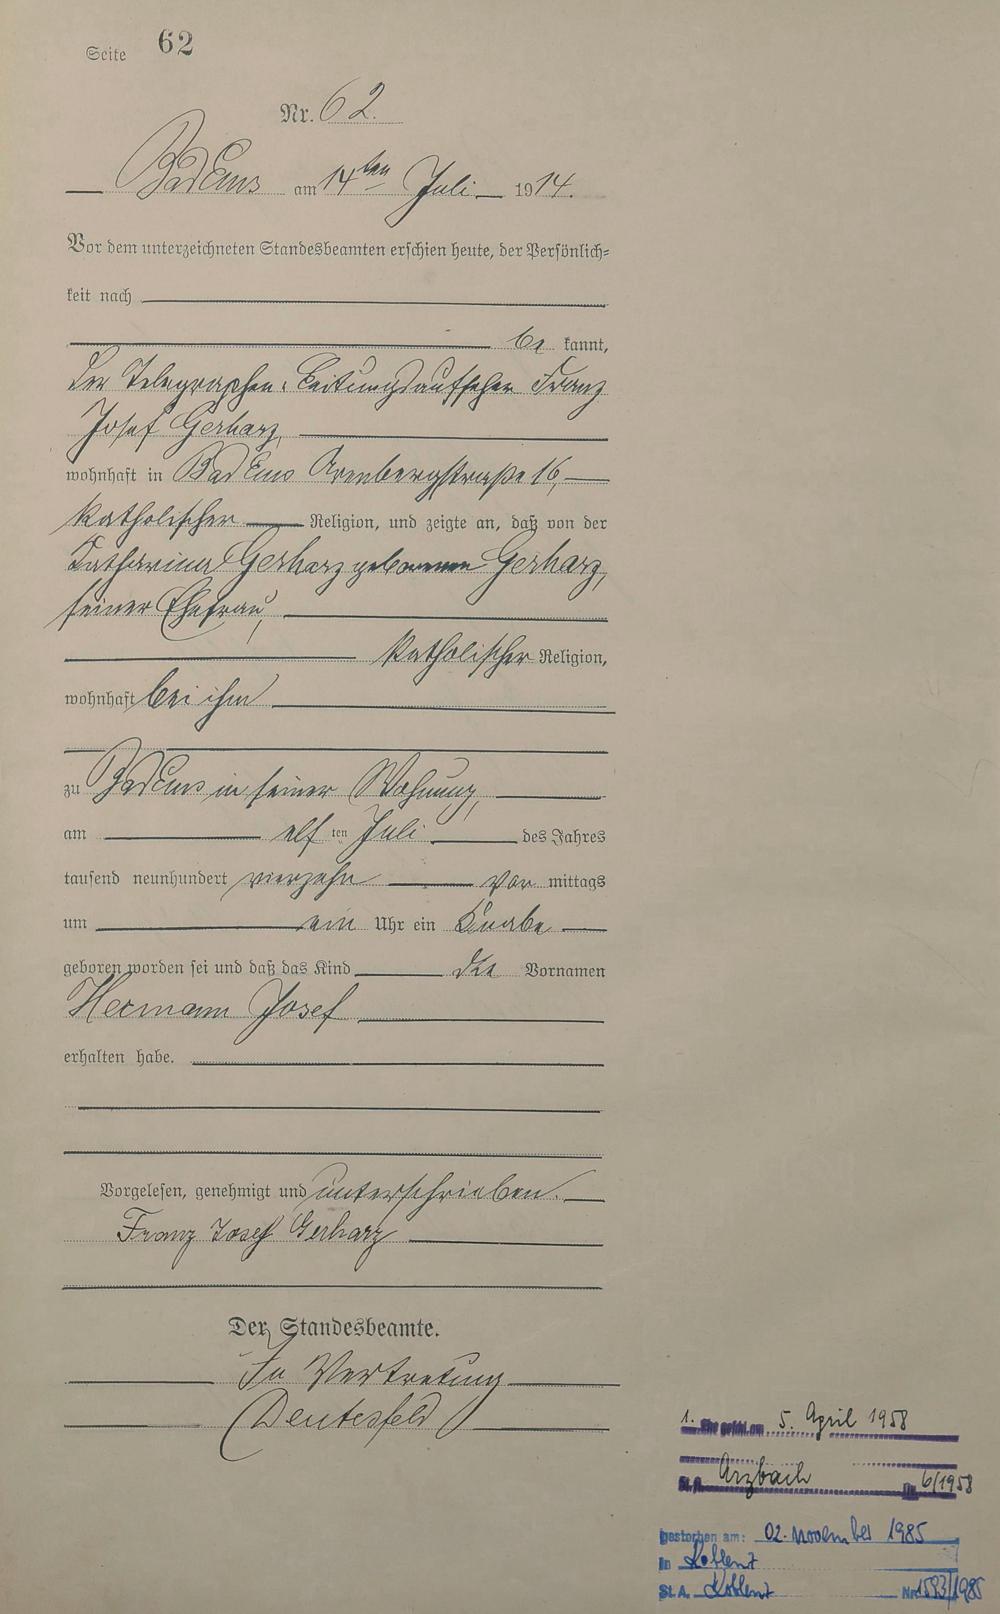 Seite 62
Nr. 62.
Bad Ems am 14ten Juli 1914.
Vor dem unterzeichneten Standesbeamten erschien heute, der Persönlich=
keit nach
be kannt,
der Telegraphen-Leitungsaufseher Franz
Josef Gerharz,
wohnhaft in Bad Ems Arenbergstraße 16,
katholischer Religion, und zeigte an, daß von der
Katharina Gerharz geborenen Gerharz,
seiner Ehefrau,
katholischer Religion,
wohnhaft bei ihm
zu Bad Ems in seiner Wohnung,
am elf ten Juli des Jahres
tausend neunhundert vierzehn vor mittags
um ein Uhr ein Knabe
geboren worden sei und daß das Kind die Vornamen
Hermann Josef
erhalten habe.
Vorgelesen, genehmigt und unterschrieben.
Franz Josef Gerharz
Der Standesbeamte.
In Vertretung
Deutesfeld
1. Ehe geschl. am 5. April 1958
St. A. Arzbach Nr. 6/1958
gestorben am: 02. November 1985
in Koblenz
St. A. Koblenz Nr. 1593/1985